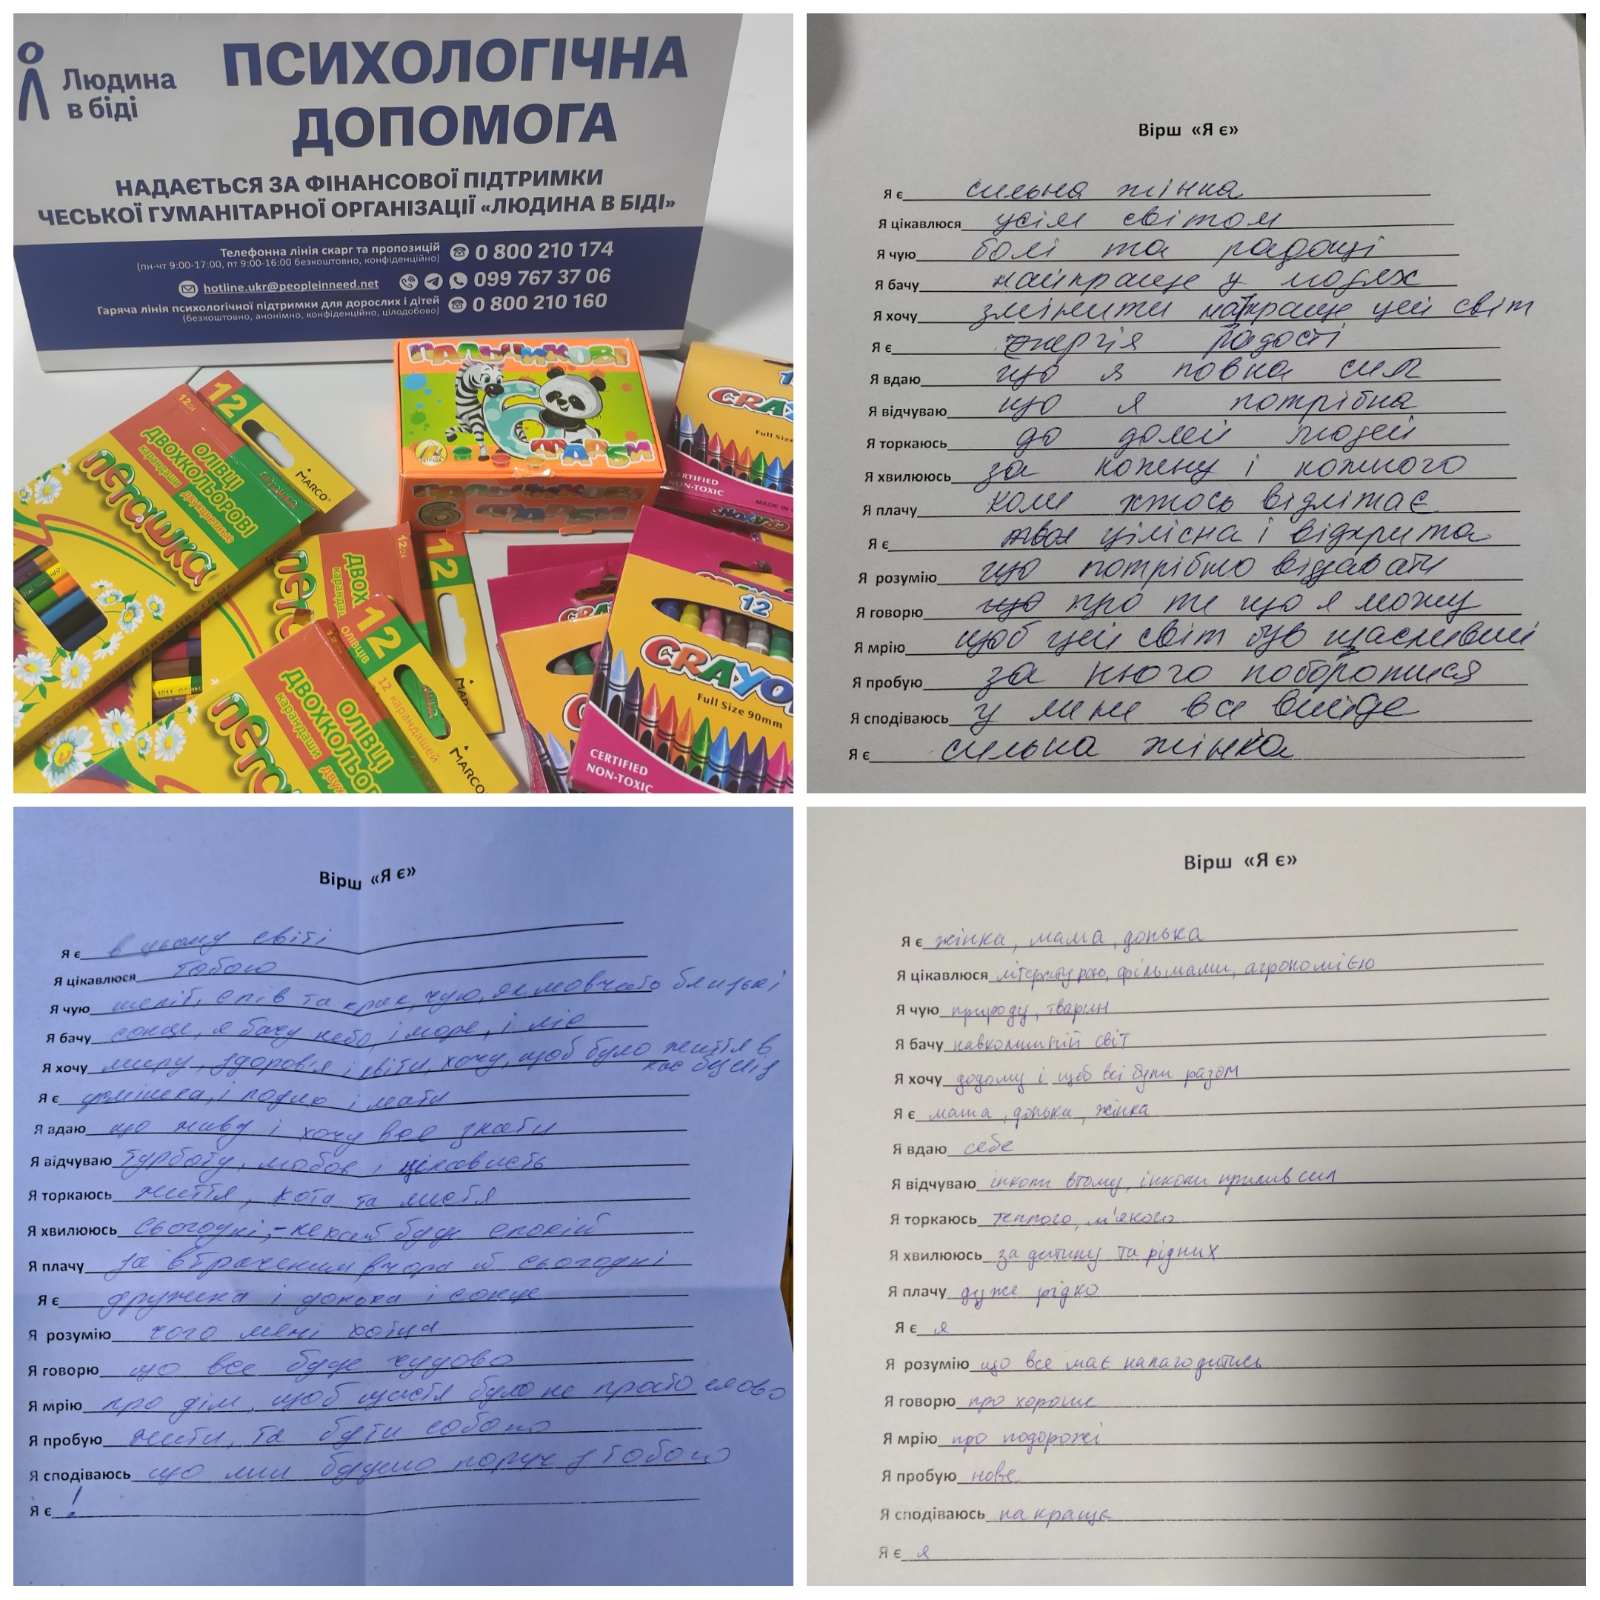 Людина
в біді
ПСИХОЛОГІЧНА
ДОПОМОГА
НАДАЄТЬСЯ ЗА ФІНАНСОВОЇ ПІДТРИМКИ
ЧЕСЬКОЇ ГУМАНІТАРНОЇ ОРГАНІЗАЦІЇ «ЛЮДИНА В БІДІ»
Телефонна лінія скарг та пропозицій 0 800 210 174
(пн-чт 9:00-17:00, пт 9:00-16:00 безкоштовно, конфіденційно)
hotline.ukr@peopleinneed.net 099 767 37 06
Гаряча лінія психологічної підтримки для дорослих і дітей 0 800 210 160
(безкоштовно, анонімно, конфіденційно, цілодобово)
ПАЛЬЧИКОВІ
6
ФАРБИ
ПАЛЬЧИКОВІ
6 ФАРБИ
12
ОЛІВЦІ
ДВОХКОЛЬОРОВІ
карандаши двухцветные
MARCO
ПЕГАШКА
12
12
ОЛІВЦІВ
12 карандашей
ОЛІВЦІ
ДВОХКОЛЬОРОВІ
карандаши
MARCO
ПЕГАШКА
CERTIFIED
NON-TOXIC
12
Full Size 90mm
CERTIFIED
NON-TOXIC
Вірш «Я є»
Я є сильна жінка
Я цікавлюся усім світом
Я чую болі та радощі
Я бачу найкраще у людях
Я хочу змінити на краще цей світ
Я є енергія радості
Я вдаю що я повна сил
Я відчуваю що я потрібна
Я торкаюсь до долей людей
Я хвилююсь за кожну і кожного
Я плачу коли хтось відлітає
Я є цілісна і відкрита
Я розумію що потрібно віддавати
Я говорю про те що я можу
Я мрію щоб цей світ був щасливий
Я пробую за нього поборотися
Я сподіваюсь у мене все вийде
Я є сильна жінка
Вірш «Я є»
Я є в цьому світі
Я цікавлюся тобою
Я чую шепіт, спів та крик, чую, як мовчать близькі
Я бачу сонце, я бачу небо, і море, і ліс
Я хочу миру, здоров'я і світи, хочу, щоб було життя в нас без сліз
Я є домішка, і подих і мати
Я вдаю що живу і хочу все знати
Я відчуваю турботу, любов і цікавість
Я торкаюсь життя, кота та листя
Я хвилююсь сьогодні,- нехай буде спокій
Я плачу за втраченим вчора й сьогодні
Я є дружина і донька і сонце
Я розумію чого мені хотіця
Я говорю що все буде чудово
Я мрію про дім, щоб щастя було не просто слово
Я пробую жити, та бути собою
Я сподіваюсь що ми будемо поруч з тобою
Я є !
Вірш «Я є»
Я є жінка, мама, донька
Я цікавлюся літературою, фільмами, агрономією
Я чую природу, тварин
Я бачу навколишній світ
Я хочу додому і щоб всі були разом
Я є мама, донька, жінка
Я вдаю себе
Я відчуваю інколи втому, інколи прилив сил
Я торкаюсь теплого, м'якого
Я хвилююсь за дитину та рідних
Я плачу дуже рідко
Я є я
Я розумію що все має налагодитись
Я говорю про хороше
Я мрію про подорожі
Я пробую нове
Я сподіваюсь на краще
Я є я